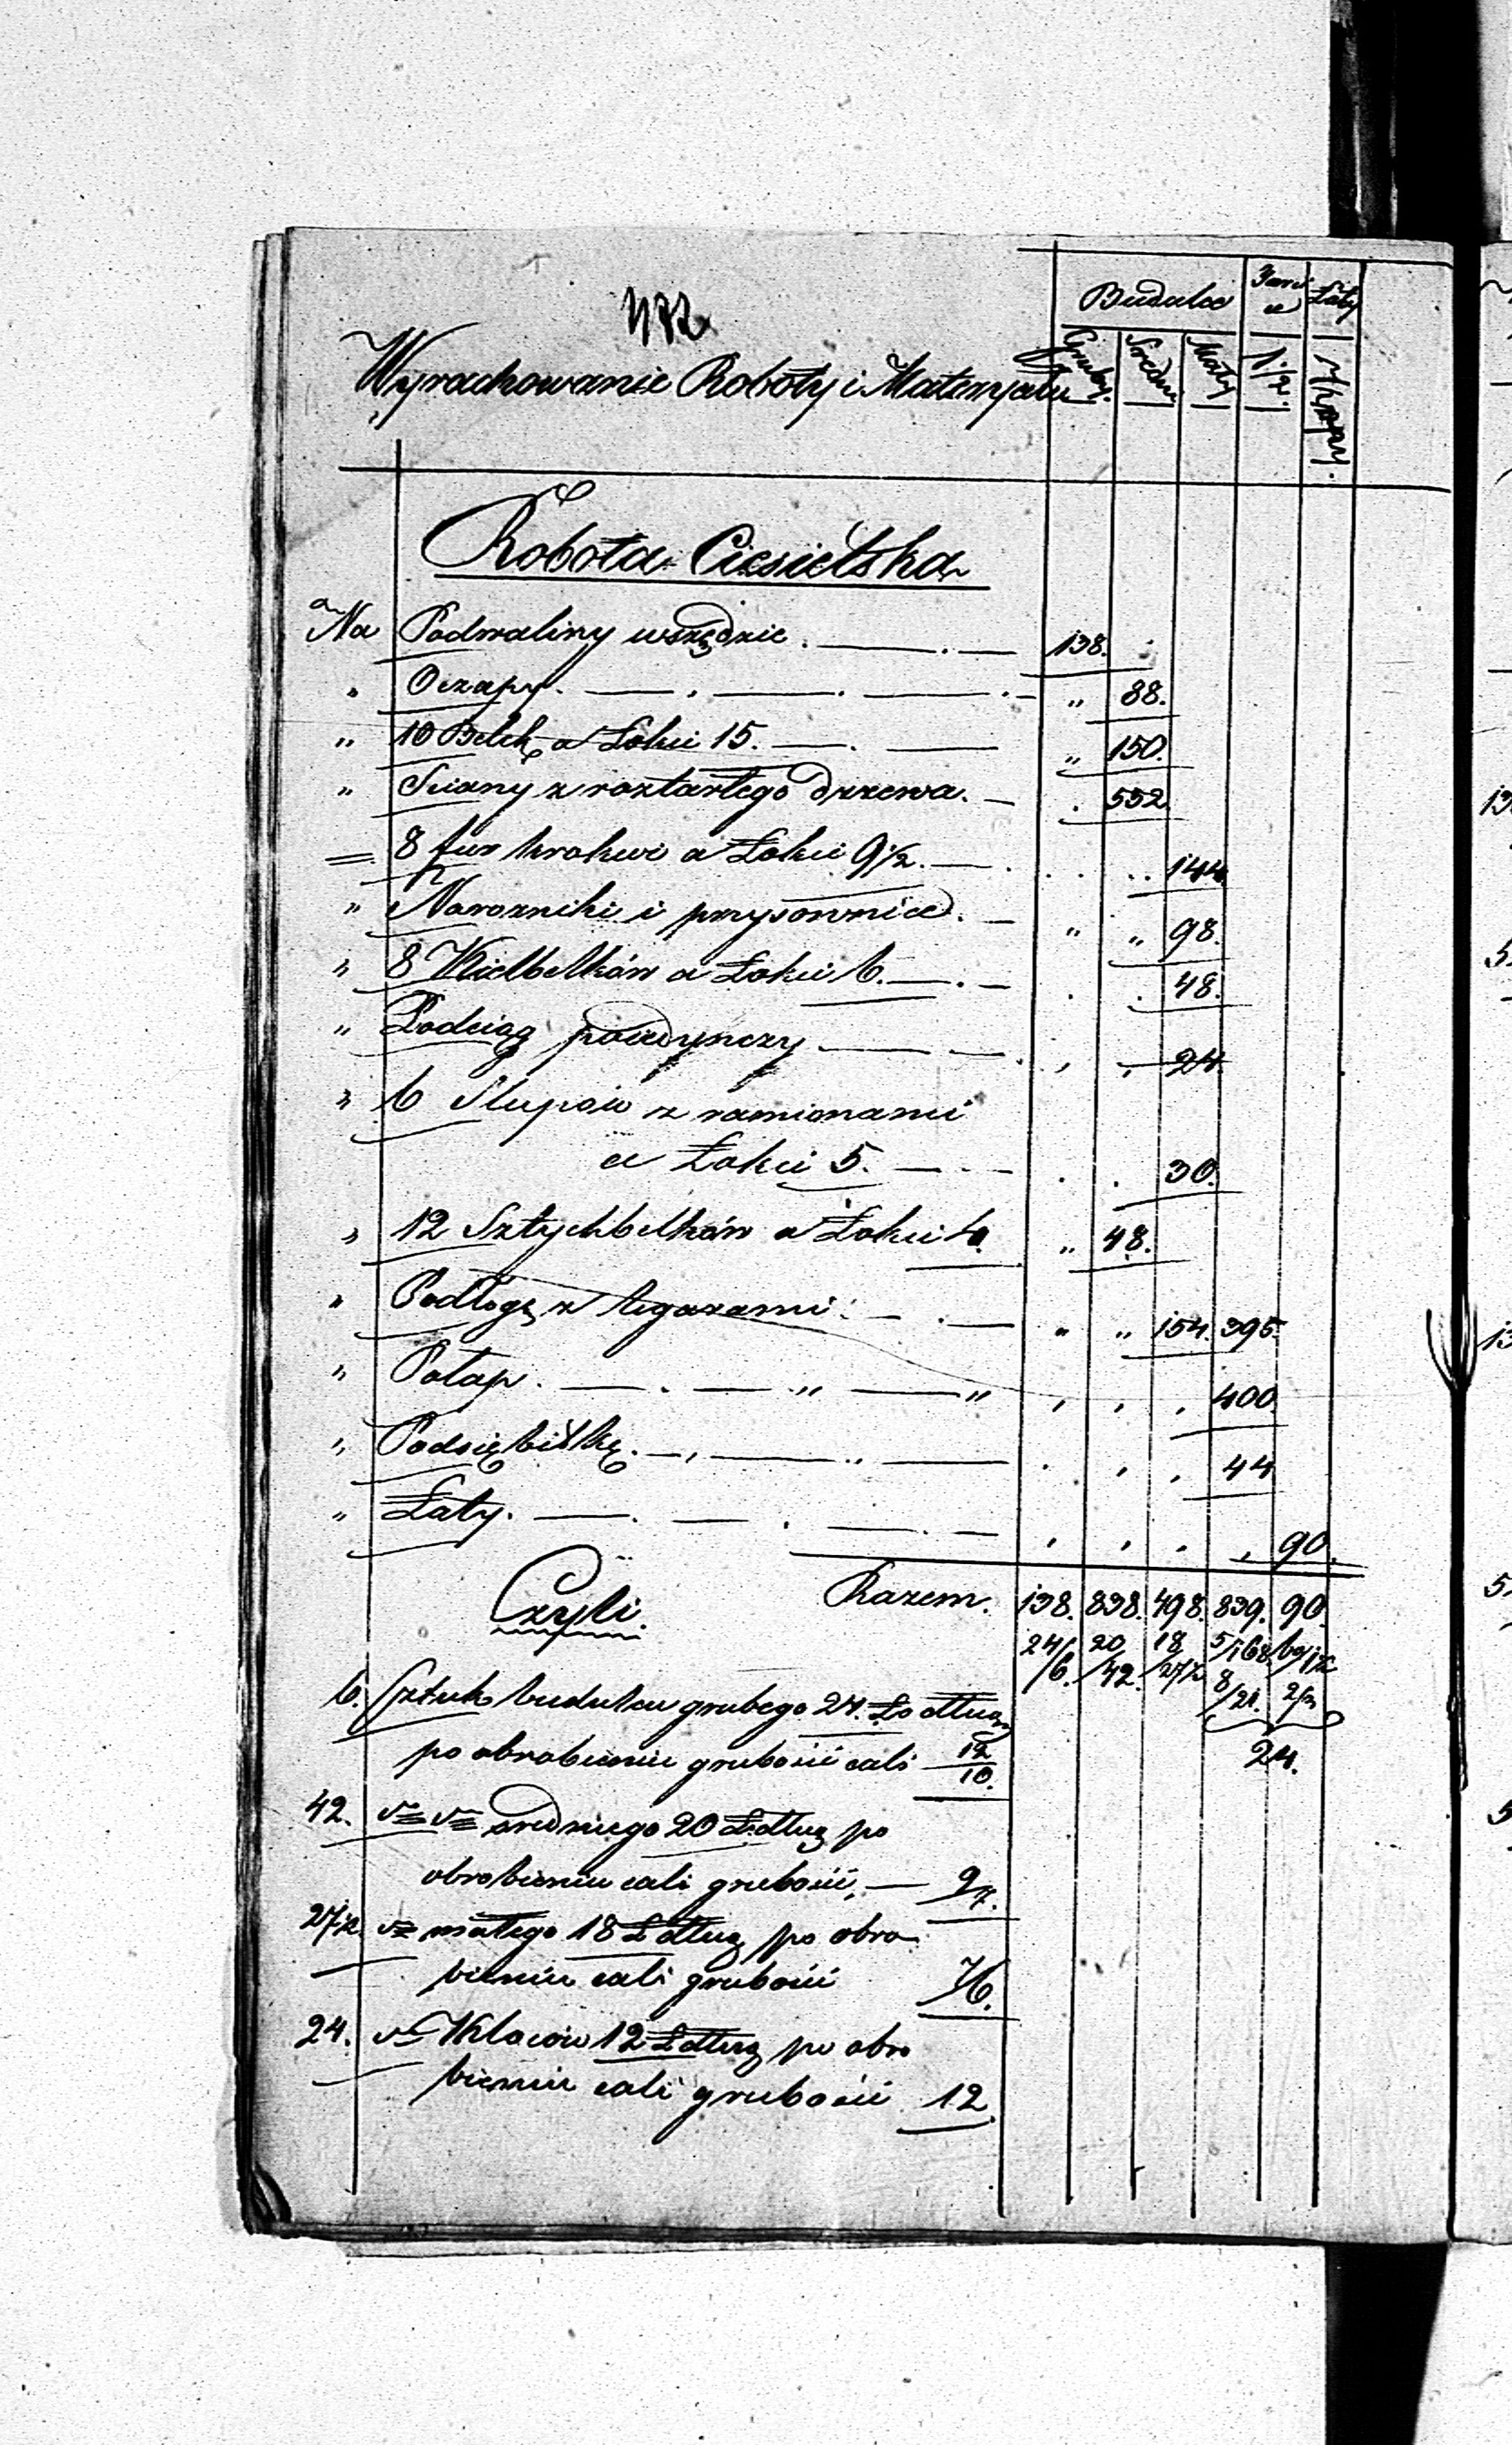 Budulec
Łaty
Wyrachowanie Roboty i Materyału
Gruby. Średni Mały 1 1/2.
Robota Ciesielska
Na Podwaliny wszędzie. 138.
" Oczapy. " 88.
" 10 Belek a Łokci 15. " 150.
" Sciany z roztartego drzewa. 552
8 par krokwi a Łokci 9 1/2. 144
" Narozniki i przysownice. " " 98.
" 8 Kielbelków a Łokci 6. 48.
" Podciąg poiedynczy 24
" 6 Słupów z ramionami
a Łokci 5. 30.
" 12 Sztychbelków a Łokci 4. " 48.
" Podłogę z legarami " " 154. 395.
" Pułap. 400
" Podsiębitkę. 44
" Łaty. 90.
Razem. 138. 838. 498. 839. 90
Czyli
24/6. 20/42. 18/ 5/168
8/21.
6. Sztuk budulcu grubego 24. Ło długa
po obrobieniu grubości cali 12/10.
24.
42. średniego 20 Ł. długa po
obrobieniu cali grubości, 9/7.
małego 18 Ł długa po obro
bieniu cali grubości 7/6.
24. Kloców 12 Ł długa po obro
bieniu cali grubości 12.